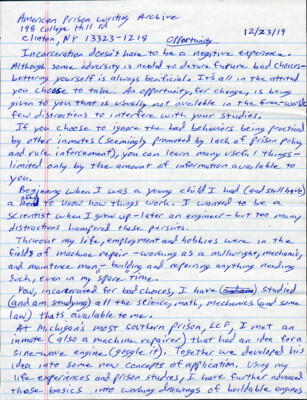 American Prison Writing Archive
198 College Hill Rd
Clinton, NY 13323-1218
12/23/19
Opportunity
Incarceration doesn't have to be a negative experience.
Although some adversity is needed to deture future bad choices-
bettering yourself is always benificial. It's all in the attitud
you choose to take. An opportunity, for change, is being
given to you that is usually not available in the free-world
few distractions to interfere with your studies.
If you choose to ignore the bad behaviors being practiced
by other inmates (seemingly promoted by lack of prison policy
and rule inforcement), you can learn many useful things-
limited only by the amount of information available to
you.
Begining when I was a young child I had (and still have)
a need to know how things work. I wanted to be a
scientist when I grew up - later an engineer - but too many
distractions hampered these persuits.
Throout my life, employment and hobbies were in the
fields of machine repair - working as a millwright, mechanic,
and maintence man - building and repairing anything needing
such, even in my spare time.
Now, incarcerated for bad choices, I have studied
(and am studying) all the science, math, mechanics (and some
law) thats available to me.
At Michigan's most southern prison, LCF, I met an
inmate (also a machine repairer) that had an idea for a
sine-wave engine (google it). Together we developed his
idea into some new concepts of application. Using my
life-experiences and prison studies, I have further advanced
those basics into working drawings of buildable engines